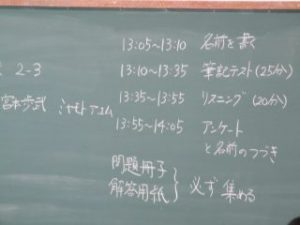 13:05~13:10 名前を書く
2-3
13:10~13:35 筆記テスト(25分)
宮本歩武 ミヤモトアユム
13:35~13:55 リスニング(20分)
13:55~14:05 アンケート
と名前のつづき
問題冊子
解答用紙
必ず集める